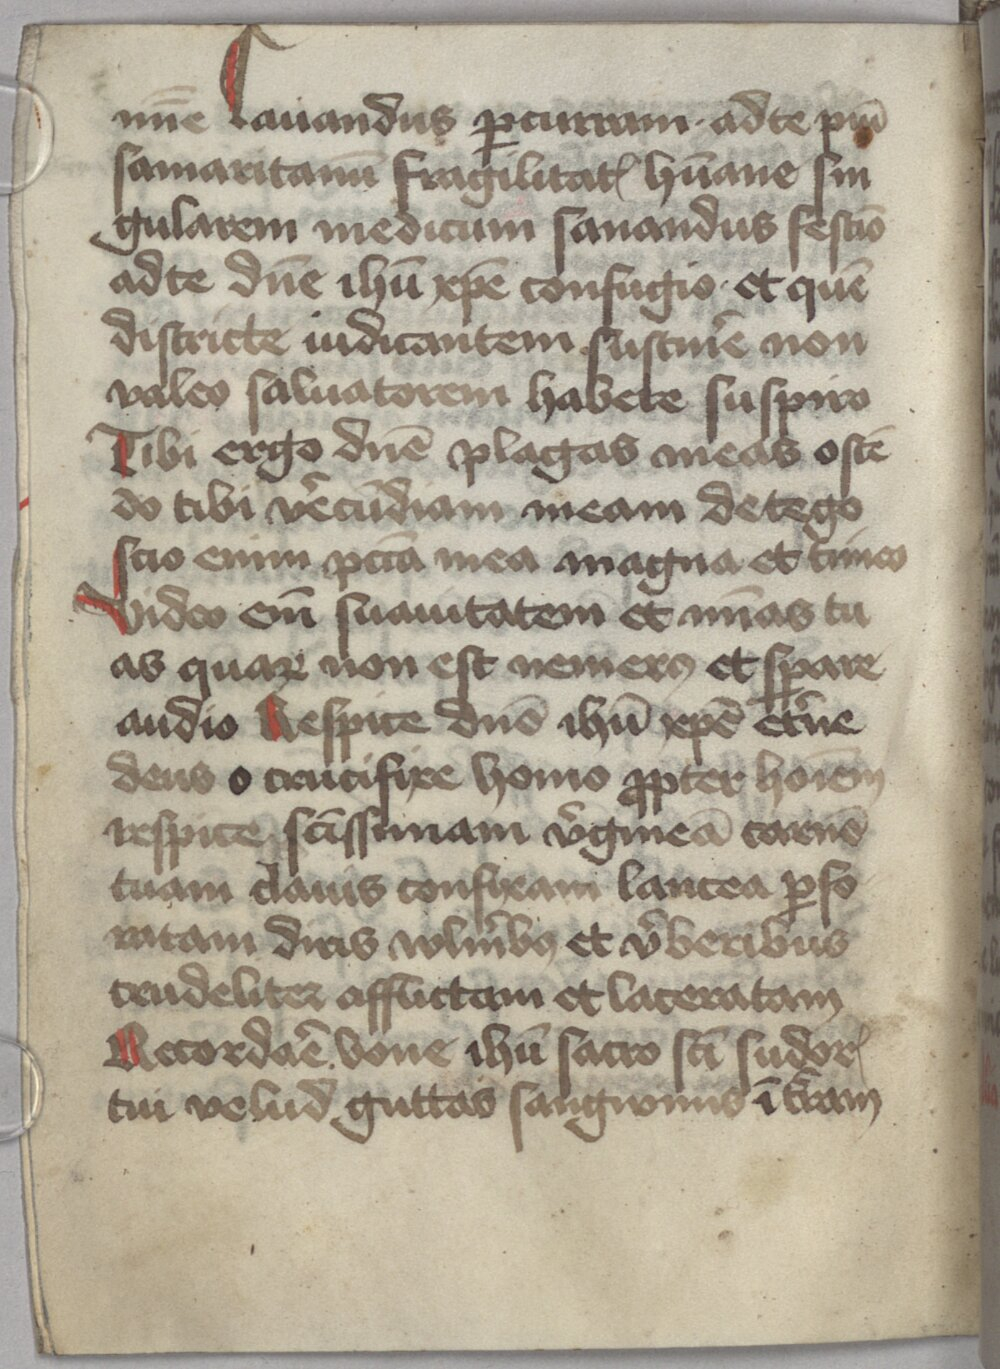 mīe Lauandus ꝑcurram. adte piū
samaritanū fragilitatꝭ hūane sin
gularem medicum sanandus festīo
adte dn̄e ihū xp̄e confugio. et quē
districte iudicantem sustin̄e non
valeo saluatorem habere suspiro
Tibi ergo dn̄e plagas meas ostē
do tibi v̓ecūdiam meam detego
scio enim pc̄cā mea magna et timeo
Video em̄ suauitatem et mīas tu
as quaꝝ non est nemerꝰ et sꝑare
audio Respice dn̄e ihū xp̄e et̓ne
deus o crucifixe homo ꝓpter hoīem
respice sc̄issimam v̓gineā carnē
tuam clauis confixam lancea ꝑfo
ratam diris wln̓ibꝰ et v̓beribus
crudeliter afflictam et laceratam
Recordar̄e bone ihū sacro sc̄i sudorꝭ
tui velud guttas sangwinis ī t̓ram